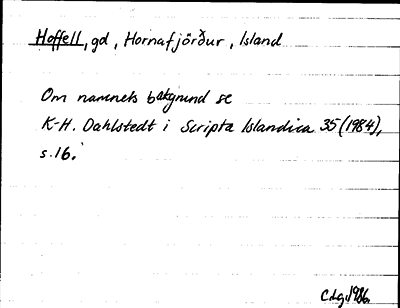 Hoffell, gd, Hornafjörður, Island
Om namnets bakgrund se
K-H. Dahlstedt i Scripta Islandica 35 (1984),
s. 16.
CLg. 1986.